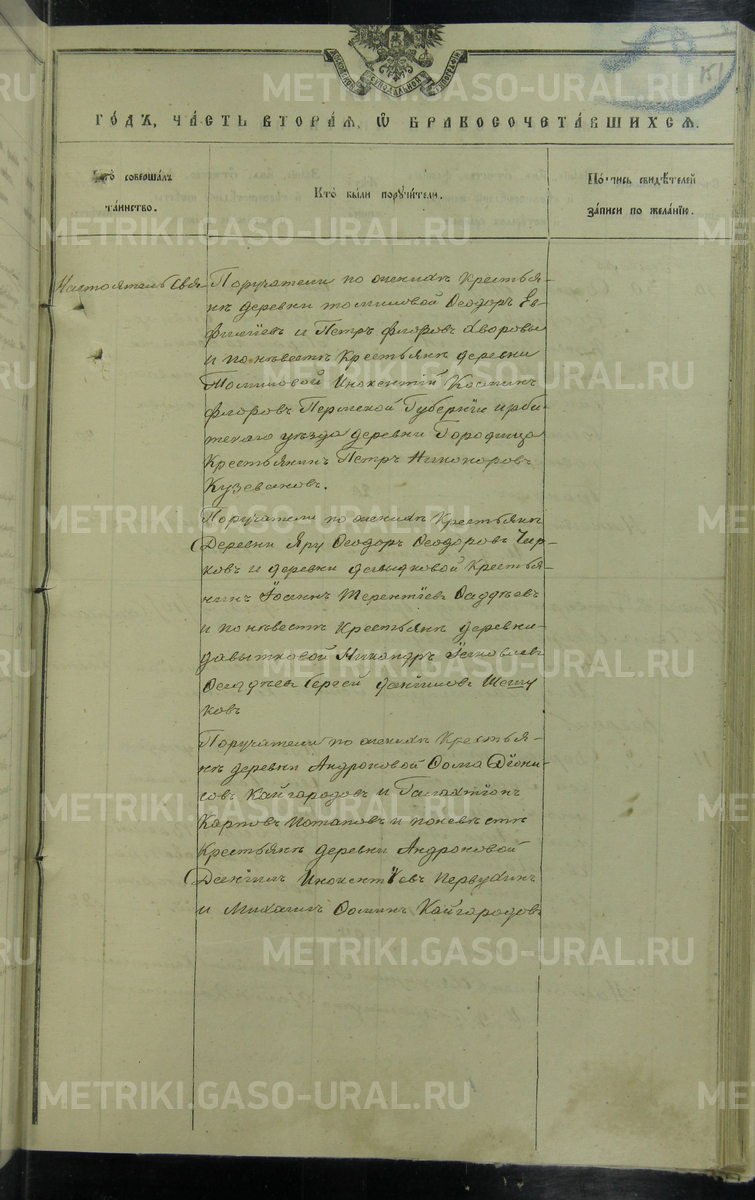 151
ГОДЪ, ЧАСТЬ ВТОРАЯ, Ѡ БРАКОСОЧЕТАВШИХСЯ.
Кто совершалъ
таинство.
Кто были поручители.
Подпись свидѣтелей
записи по желанію.
Настоятель Свя-
Поручатели по женихѣ Крестья-
нѣ деревни Томиловой Ѳеодоръ Ев-
фиміевъ и Петръ Флоровъ Хворовы
и по невестѣ Крестьянѣ деревни
Томиловой Инокентій Костинъ
Флоровъ Пермской Губерніи ирби-
тскаго уѣзда деревни Городища
Крестьянинъ Петръ Никоноровъ
Кузевановъ.
Поручатели по женихѣ Крестьянѣ
Деревни Яру Ѳеодоръ Ѳеодоровъ Чир-
ковъ и деревни давыдковой Крестья-
нинъ Іоаннъ Терентіевъ Ѳаддѣевъ
и по невестѣ Крестьянѣ деревни
давытковой Никандръ Іяковлевъ
Сергей даниловъ
ковъ
Поручатели по женихѣ Крестья-
нѣ деревни Андроновой Ѳома Діони-
совъ Кайгородовъ и Галахтіонъ
Карповъ Потаповъ и поневѣстѣ
Крестьянѣ деревни Андроновой
Даніилъ Инокентіевъ Первухинъ
и Михаилъ Ѳоминъ Кайгородовъ
METRIKI.GASO-URAL.RU